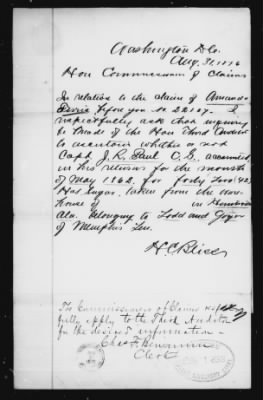 Washington D.C.
Aug. 31, 1876
Hon Commissioners of Claims
In relation to the claim of Amanda
before you No 22167. I
respectfully ask that inquiry
be made of the Hon Third Auditor
to ascertain whether or not
Capt J. R. Paul C.S. accounted
in his returns for the month
of May 1862. for forty two (42)
Hds Sugar, taken from the ware
house of in
Ala. belonging to Todd and
of Memphis Ten.
The Commissioners of Claims respect
fully apply to the Third Auditor
for the desired information -
Chas F. Benjamin
Clerk